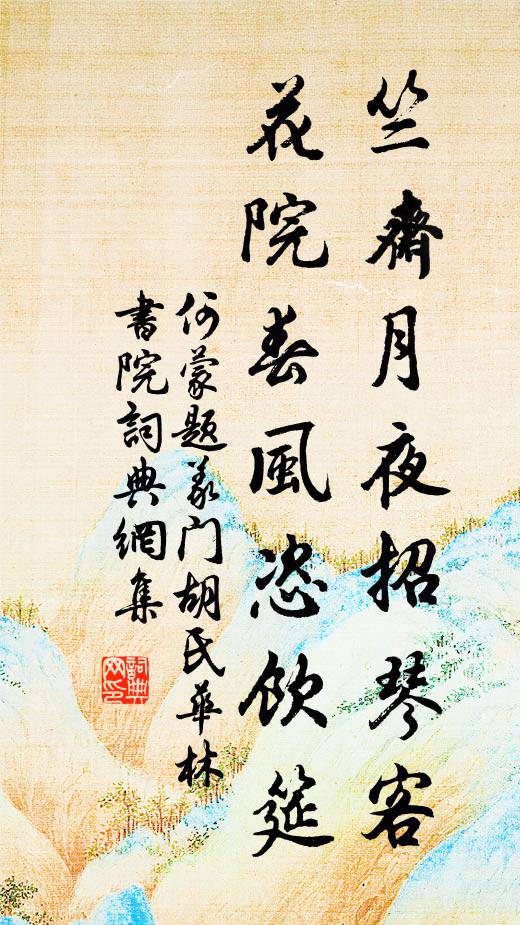 竺齋月夜招琴客
花院春風恣飲筵
何蒙題義门胡氏華林
書院詞典網集
詞典
网印